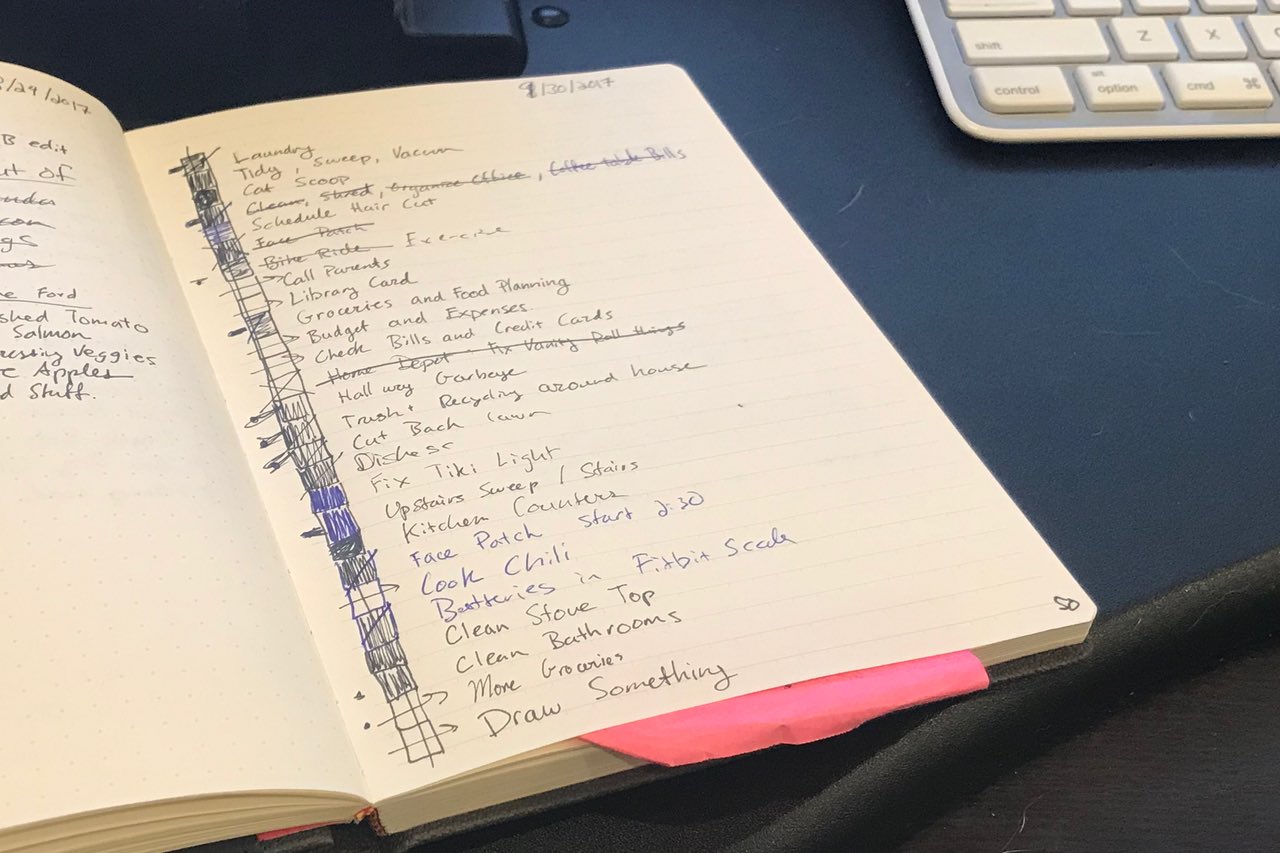 /29/2017
B edit
of
gs
Ford
shed Tomato
Salmon
Veggies
Apples
d Stuff.
9/30/2017
Laundry
Tidy, Sweep, Vacuum
Cat Scoop
Clean, Shred, Organize Office, Coffee table Bills
Schedule Hair Cut
Face Patch
Bike Ride Exercise
Call Parents
Library Card
Groceries and Food Planning
Budget and Expenses.
Check Bills and Credit Cards
Home Depot - Fix Vanity Roll things
Hallway Garbage
Trash + Recycling around house
Cut Back Lawn
Dishes
Fix Tiki Light
Upstairs Sweep / Stairs
Kitchen Counters
Face Patch Start 2:30
Cook Chili
Batteries in Fitbit Scale
Clean Stove Top
Clean Bathrooms
More Groceries
Draw Something
50
shift
Z
X
control
alt
option
cmd ⌘